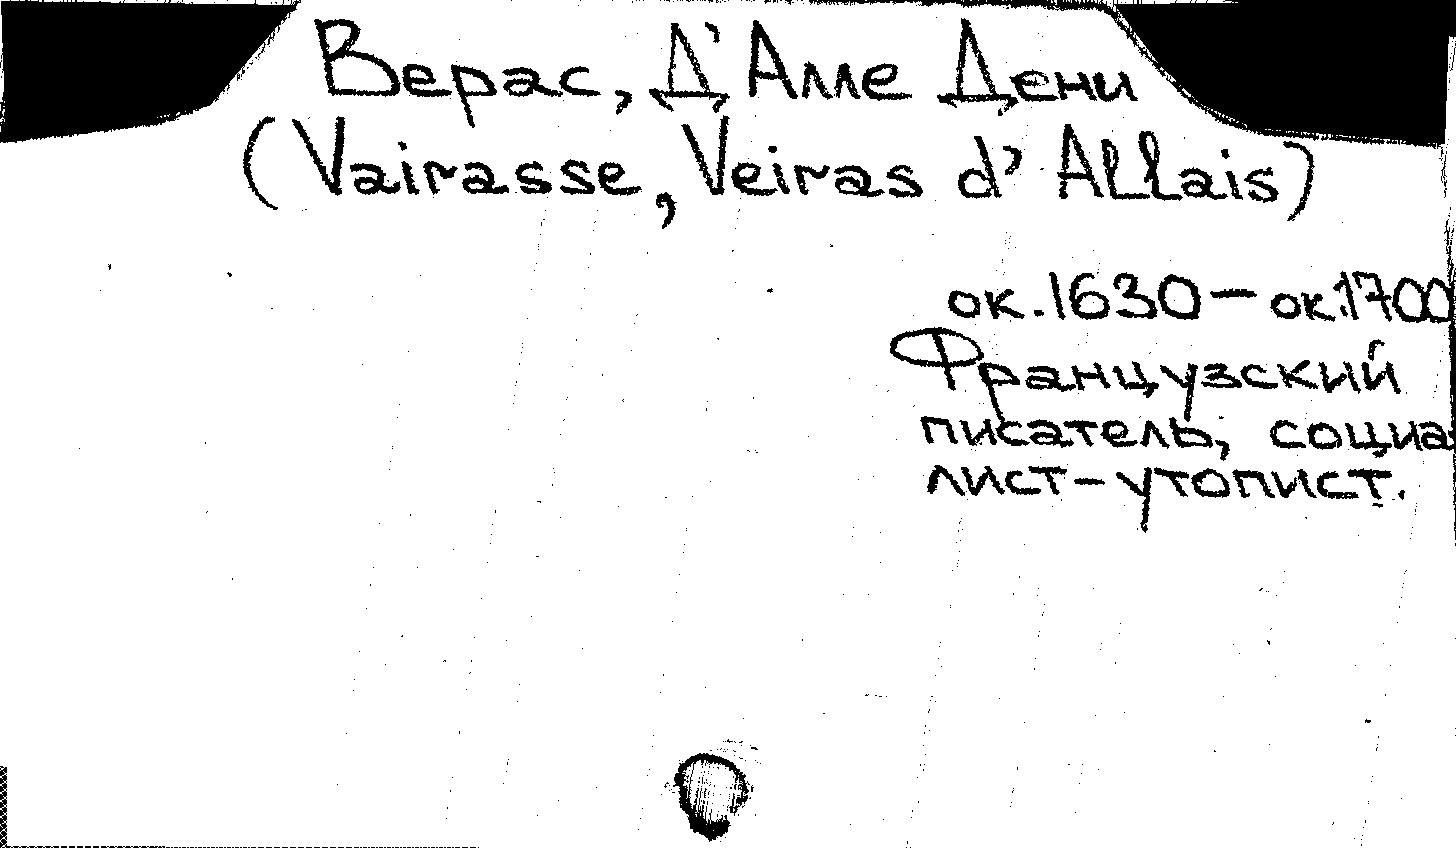 Верас, Д'Алле Дени
(Vairasse, Veiras d'Allais)
ок. 1630 – ок. 1700
Французский
писатель, социа-
лист-утопист.